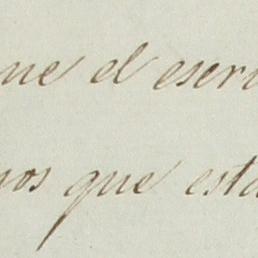 que el escri
nos que esta